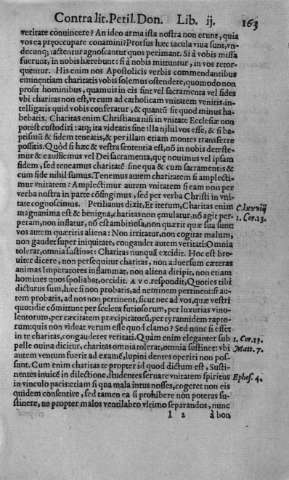 Contra lit. Petil. Don. Lib. ij. 163
veritate conuincere? An ideo arma ista nostra non erunt, quia
vos ea præoccupare conamini? Prorsus hæc iacula viua sunt, vn-
decunq; iactentur agnoscuntur quos perimant. Si à vobis missa
fuerint, in nobis hærebunt: si à nobis mittuntur, in vos retor-
quentur. His enim nos Apostolicis verbis commendantibus
eminentiam charitatis vobis solemus ostendere, quomodo non
prosit hominibus, quamuis in eis sint vel sacramenta vel fides
vbi charitas non est, vt cum ad catholicam vnitatem veneritis in-
telligatis quid vobis conferatur, & quantū sit quod minus ha-
bebatis. Charitas enim Christiana nisi in vnitate Ecclesiæ non
potest custodiri: atq; ita videatis sine illa nihil vos esse, & si ba-
ptismū & fidem teneatis, & per illam etiam montes transferre
possitis. Quòd si hæc & vestra sententia est, nō in nobis deteste-
mur & exufflemus vel Dei sacramenta, quæ nouimus vel ipsam
fidem, sed teneamus charitatē sine qua & cum sacramentis &
cum fide nihil sumus. Tenemus autem charitatem si amplecti-
mur vnitatem: Amplectimur autem vnitatem si eam non per
verba nostra in parte cōfingimus, sed per verba Christi in vni-
tate cognoscimus. Petilianus dixit, Et iterum, Charitas enim C. lxxviij
magnanima est & benigna, charitas non emulatur, nō agit per- 1. Cor. 13.
peram, non inflatur, nō est ambitiosa, non quærit quæ sua sunt:
vos autem aliena quæritis. Non irritatur, non cogitat malum,
non gaudet super iniquitate, congaudet autem veritati: Omnia
tolerat, omnia sustinet: Charitas nunquā excidit. Hoc est bre-
uiter dicere, non persequitur charitas, non aduersum cæteras
animas Imperatores inflammat, non aliena diripit, non etiam
homines quos spoliabet, occidit. AVG. respondit, Quoties tibi
dicturus sum, hæc si non probatis, ad neminem pertinent: si au-
tem probatis, ad nos non pertinent, sicut nec ad vos, quæ vestri
quotidie cōmittunt per scelera furiosorum, per luxurias vino-
lentorum, per cæcitatem præcipitatorū, per tyrannidem rapto-
rum: quis non videat verum esse quod clamo? Sed nunc si esset
in te charitas, congauderet veritati. Quàm enim eleganter sub 1. Cor. 13.
pelle ouina dicitur, charitas omnia tolerat, omnia sustinet: vbi Matt. 7.
autem ventum fuerit ad examē, lupini dentes operiri non pos-
sunt. Cum enim charitas te propter id quod dictum est, Susti-
nentes inuicē in dilectione, studentes seruare vnitatem spiritus Ephes. 4.
in vinculo pacis: etiam si qua mala intus nosses, cogeret non eis
quidem consentire, sed tamen ea si prohibere non poteras su-
stinere, ne propter malos ventilabro vltimo separandos, nunc
l 2 à bon